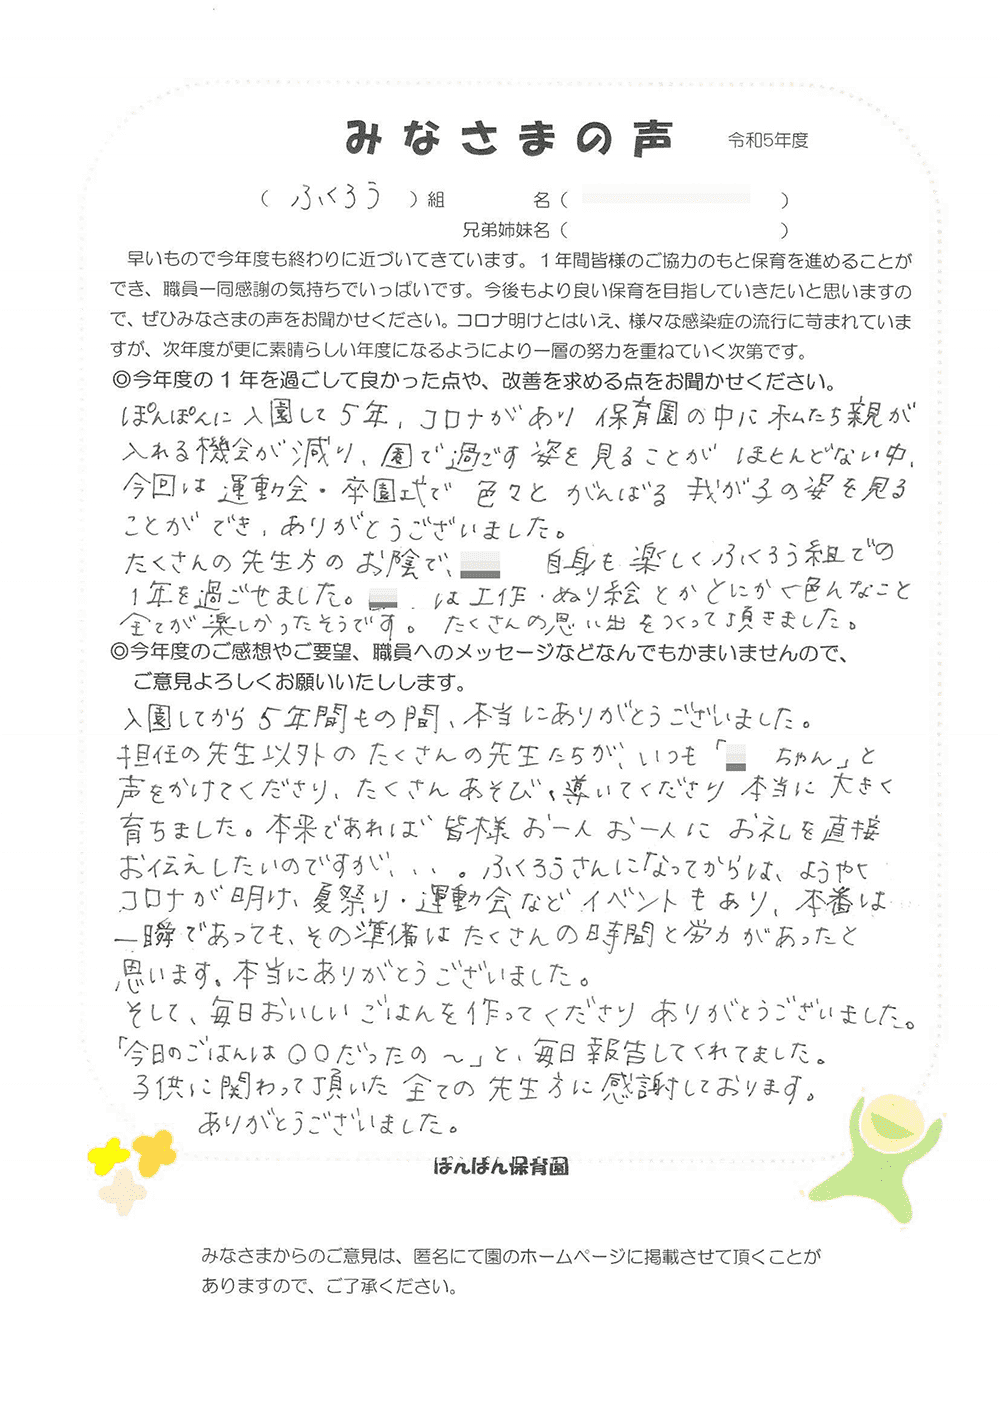 みなさまの声 令和5年度
（ ふくろう ）組 名（ ）
兄弟姉妹名（ ）
早いもので今年度も終わりに近づいてきています。１年間皆様のご協力のもと保育を進めることが
でき、職員一同感謝の気持ちでいっぱいです。今後もより良い保育を目指していきたいと思いますの
で、ぜひみなさまの声をお聞かせください。コロナ明けとはいえ、様々な感染症の流行に苛まれていま
すが、次年度が更に素晴らしい年度になるようにより一層の努力を重ねていく次第です。
◎今年度の１年を過ごして良かった点や、改善を求める点をお聞かせください。
ぽんぽんに入園して5年、コロナがあり 保育園の中に私たち親が
入れる機会が減り、園で過ごす姿を見ることが ほとんどない中、
今回は運動会・卒園式で 色々と がんばる 我が子の姿を見る
ことが でき、ありがとうございました。
たくさんの先生方の お陰で、 自身も 楽しくふくろう組での
1年を過ごせました。 は工作・ぬり絵 とか とにかく色んなこと
全てが楽しかったそうです。 たくさんの思い出をつくって頂きました。
◎今年度のご感想やご要望、職員へのメッセージなどなんでもかまいませんので、
ご意見よろしくお願いいたしします。
入園してから5年間もの間、本当にありがとうございました。
担任の先生以外の たくさんの先生たちが、いつも「 ちゃん」と
声をかけてくださり、たくさん あそび、導いてくださり 本当に 大きく
育ちました。本来であれば 皆様 お一人 お一人に お礼を直接
お伝えしたいのですが、、、。ふくろうさんになってからは、ようやく
コロナが明け、夏祭り・運動会など イベントもあり、本番は
一瞬であっても、その準備はたくさんの時間と労力があったと
思います。本当にありがとうございました。
そして、毎日おいしいごはんを作ってくださり ありがとうございました。
「今日のごはんは〇〇だったの～」と、毎日報告してくれてました。
子供に関わって頂いた 全ての 先生方に感謝しております。
ありがとうございました。
ぽんぽん保育園
みなさまからのご意見は、匿名にて園のホームページに掲載させて頂くことが
ありますので、ご了承ください。